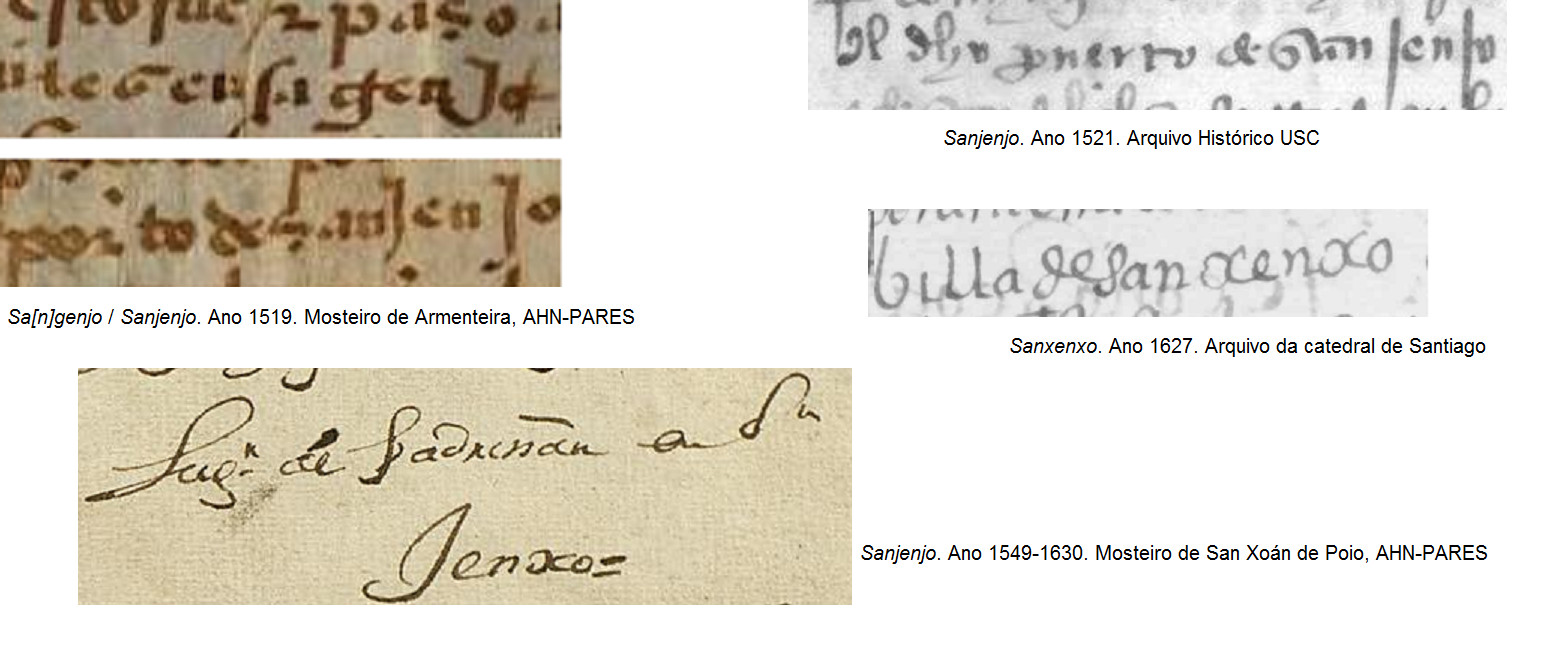 por to de sanjen jo
Sa[n]genjo / Sanjenjo. Ano 1519. Mosteiro de Armenteira, AHN-PARES
puerto de San Jenjo
Sanjenjo. Ano 1521. Arquivo Histórico USC
billa de San xenxo
Sanxenxo. Ano 1627. Arquivo da catedral de Santiago
Lugr de Padriñan en Sn
Jenxo=
Sanjenjo. Ano 1549-1630. Mosteiro de San Xoán de Poio, AHN-PARES